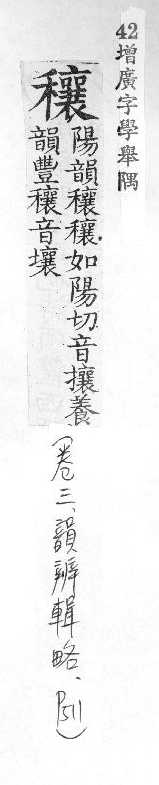 42增廣字學舉隅
穰
陽韻穰穰.如陽切.音攘養
韻豐穰音壤
(卷三、韻辨輯略、P511)